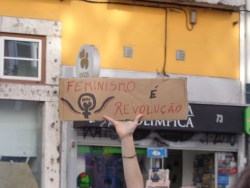 FEMINISMO É
REVOLUÇÃO
OLÍMPICA 73